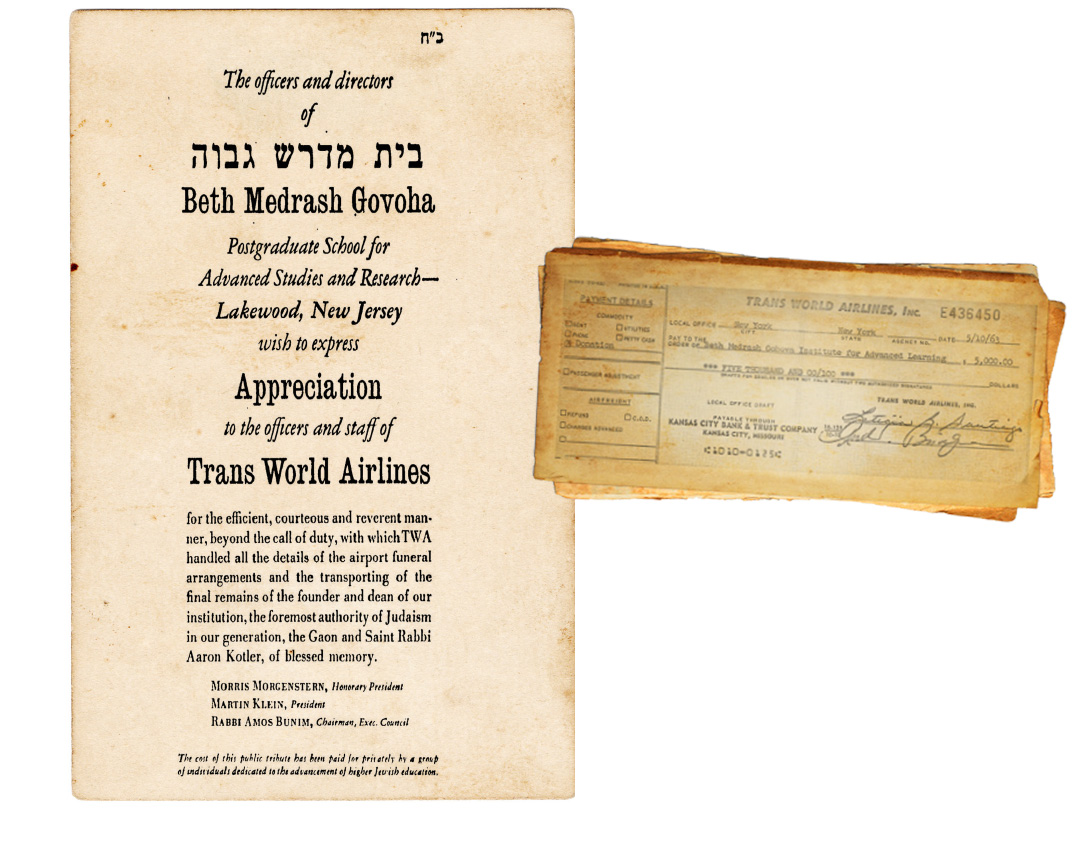 ב״ה
The officers and directors
of
בית מדרש גבוה
Beth Medrash Govoha
Postgraduate School for
Advanced Studies and Research—
Lakewood, New Jersey
wish to express
Appreciation
to the officers and staff of
Trans World Airlines
for the efficient, courteous and reverent man-
ner, beyond the call of duty, with which TWA
handled all the details of the airport funeral
arrangements and the transporting of the
final remains of the founder and dean of our
institution, the foremost authority of Judaism
in our generation, the Gaon and Saint Rabbi
Aaron Kotler, of blessed memory.
MORRIS MORGENSTERN, Honorary President
MARTIN KLEIN, President
RABBI AMOS BUNIM, Chairman, Exec. Council
The cost of this public tribute has been paid for privately by a group
of individuals dedicated to the advancement of higher Jewish education.
PAYMENT DETAILS
COMMODITY
RENT UTILITIES
PHONE PETTY CASH
Donation
PASSENGER ADJUSTMENT
AIRFREIGHT
REFUND C.O.D.
CHARGES ADVANCED
TRANS WORLD AIRLINES, INC. E436450
LOCAL OFFICE New York New York DATE 5/10/63
CITY STATE AGENCY NO.
PAY TO THE
ORDER OF Beth Medrash Gohova Institute for Advanced Learning $ 5,000.00
*** FIVE THOUSAND AND 00/100 *** DOLLARS
DRAFTS FOR $500.00 OR OVER NOT VALID WITHOUT TWO AUTHORIZED SIGNATURES
LOCAL OFFICE DRAFT TRANS WORLD AIRLINES, INC.
PAYABLE THROUGH
KANSAS CITY BANK & TRUST COMPANY
KANSAS CITY, MISSOURI
1010-0125